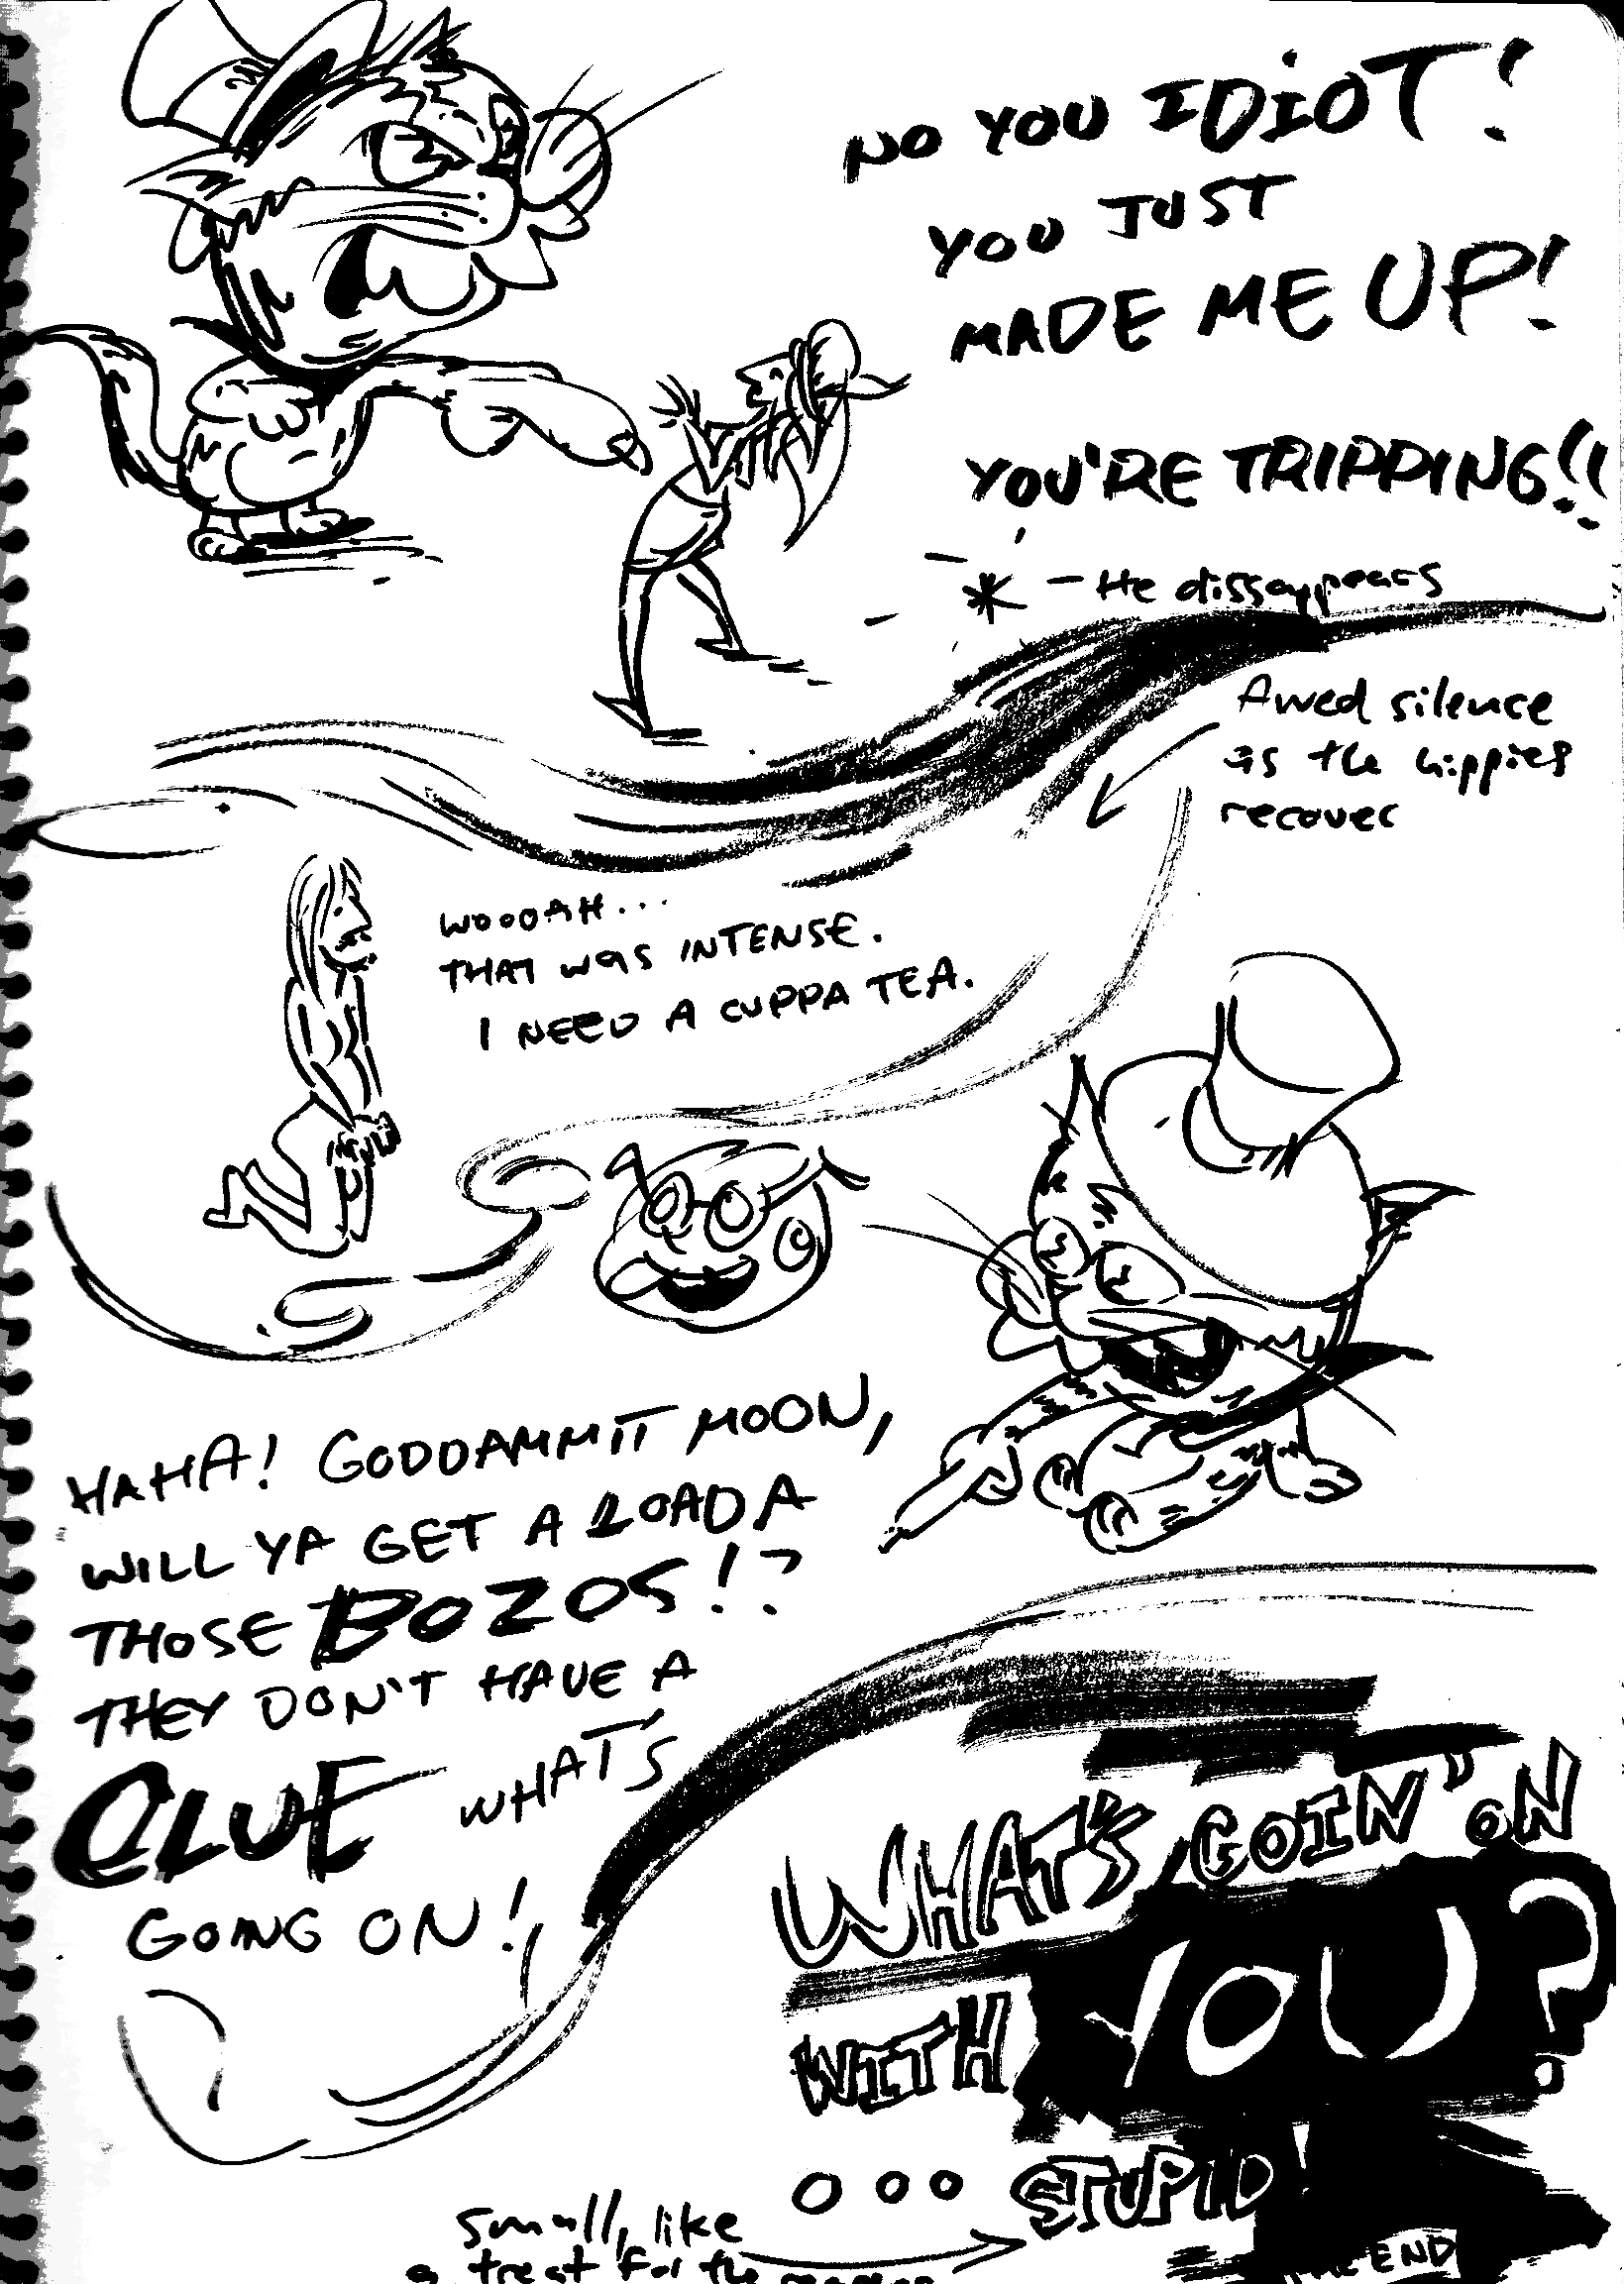 NO YOU IDIOT!
YOU JUST
MADE ME UP!
YOU'RE TRIPPING!!
* - He dissappears
Awed silence
as the hippies
recover
WOOOAH...
THAT WAS INTENSE.
I NEED A CUPPA TEA.
HAHA! GODDAMMIT MOON,
WILL YA GET A LOADA
THOSE BOZOS!?
THEY DON'T HAVE A
CLUE WHAT'S
GOING ON!
WHAT'S GOIN' ON
WITH YOU?
... STUPID!
Small, like
a treat for the
THE END